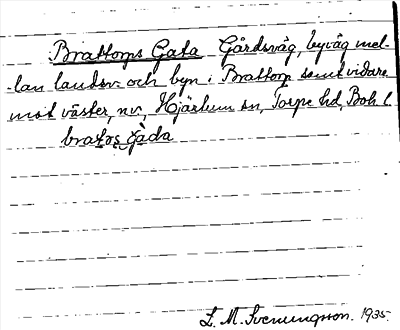 Brattorps Gata Gårdsväg, byväg mel-
-lan landsv. och byn i Brattorp samt vidare
mot väster, nv, Hjärtum sn, Torpe hd, Boh. l.
bratǫs gàda
L. M. Svenungsson. 1935.